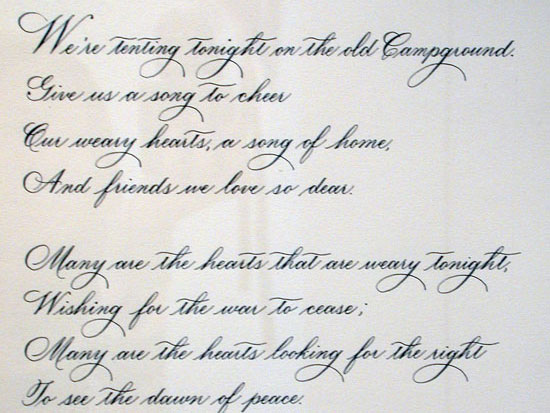 We're tenting tonight on the old Campground.
Give us a song to cheer
Our weary hearts, a song of home,
And friends we love so dear.
Many are the hearts that are weary tonight,
Wishing for the war to cease;
Many are the hearts looking for the right
To see the dawn of peace.